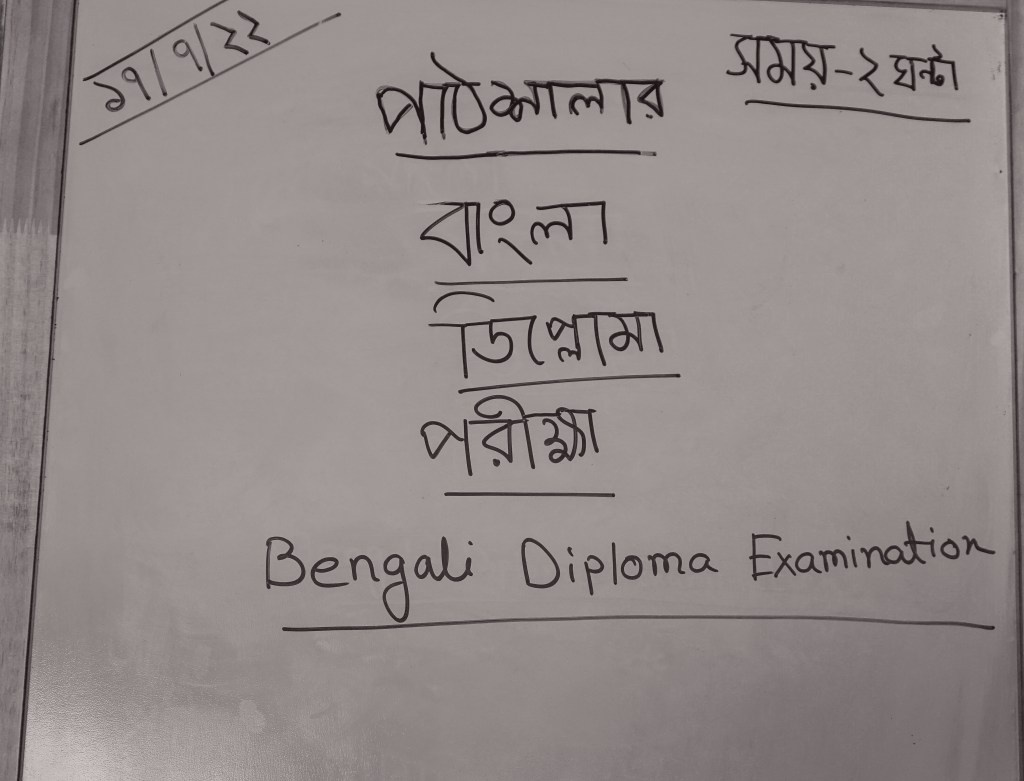 ১৭/৭/২২
সময়-২ ঘন্টা
পাঠশালার
বাংলা
ডিপ্লোমা
পরীক্ষা
Bengali Diploma Examination